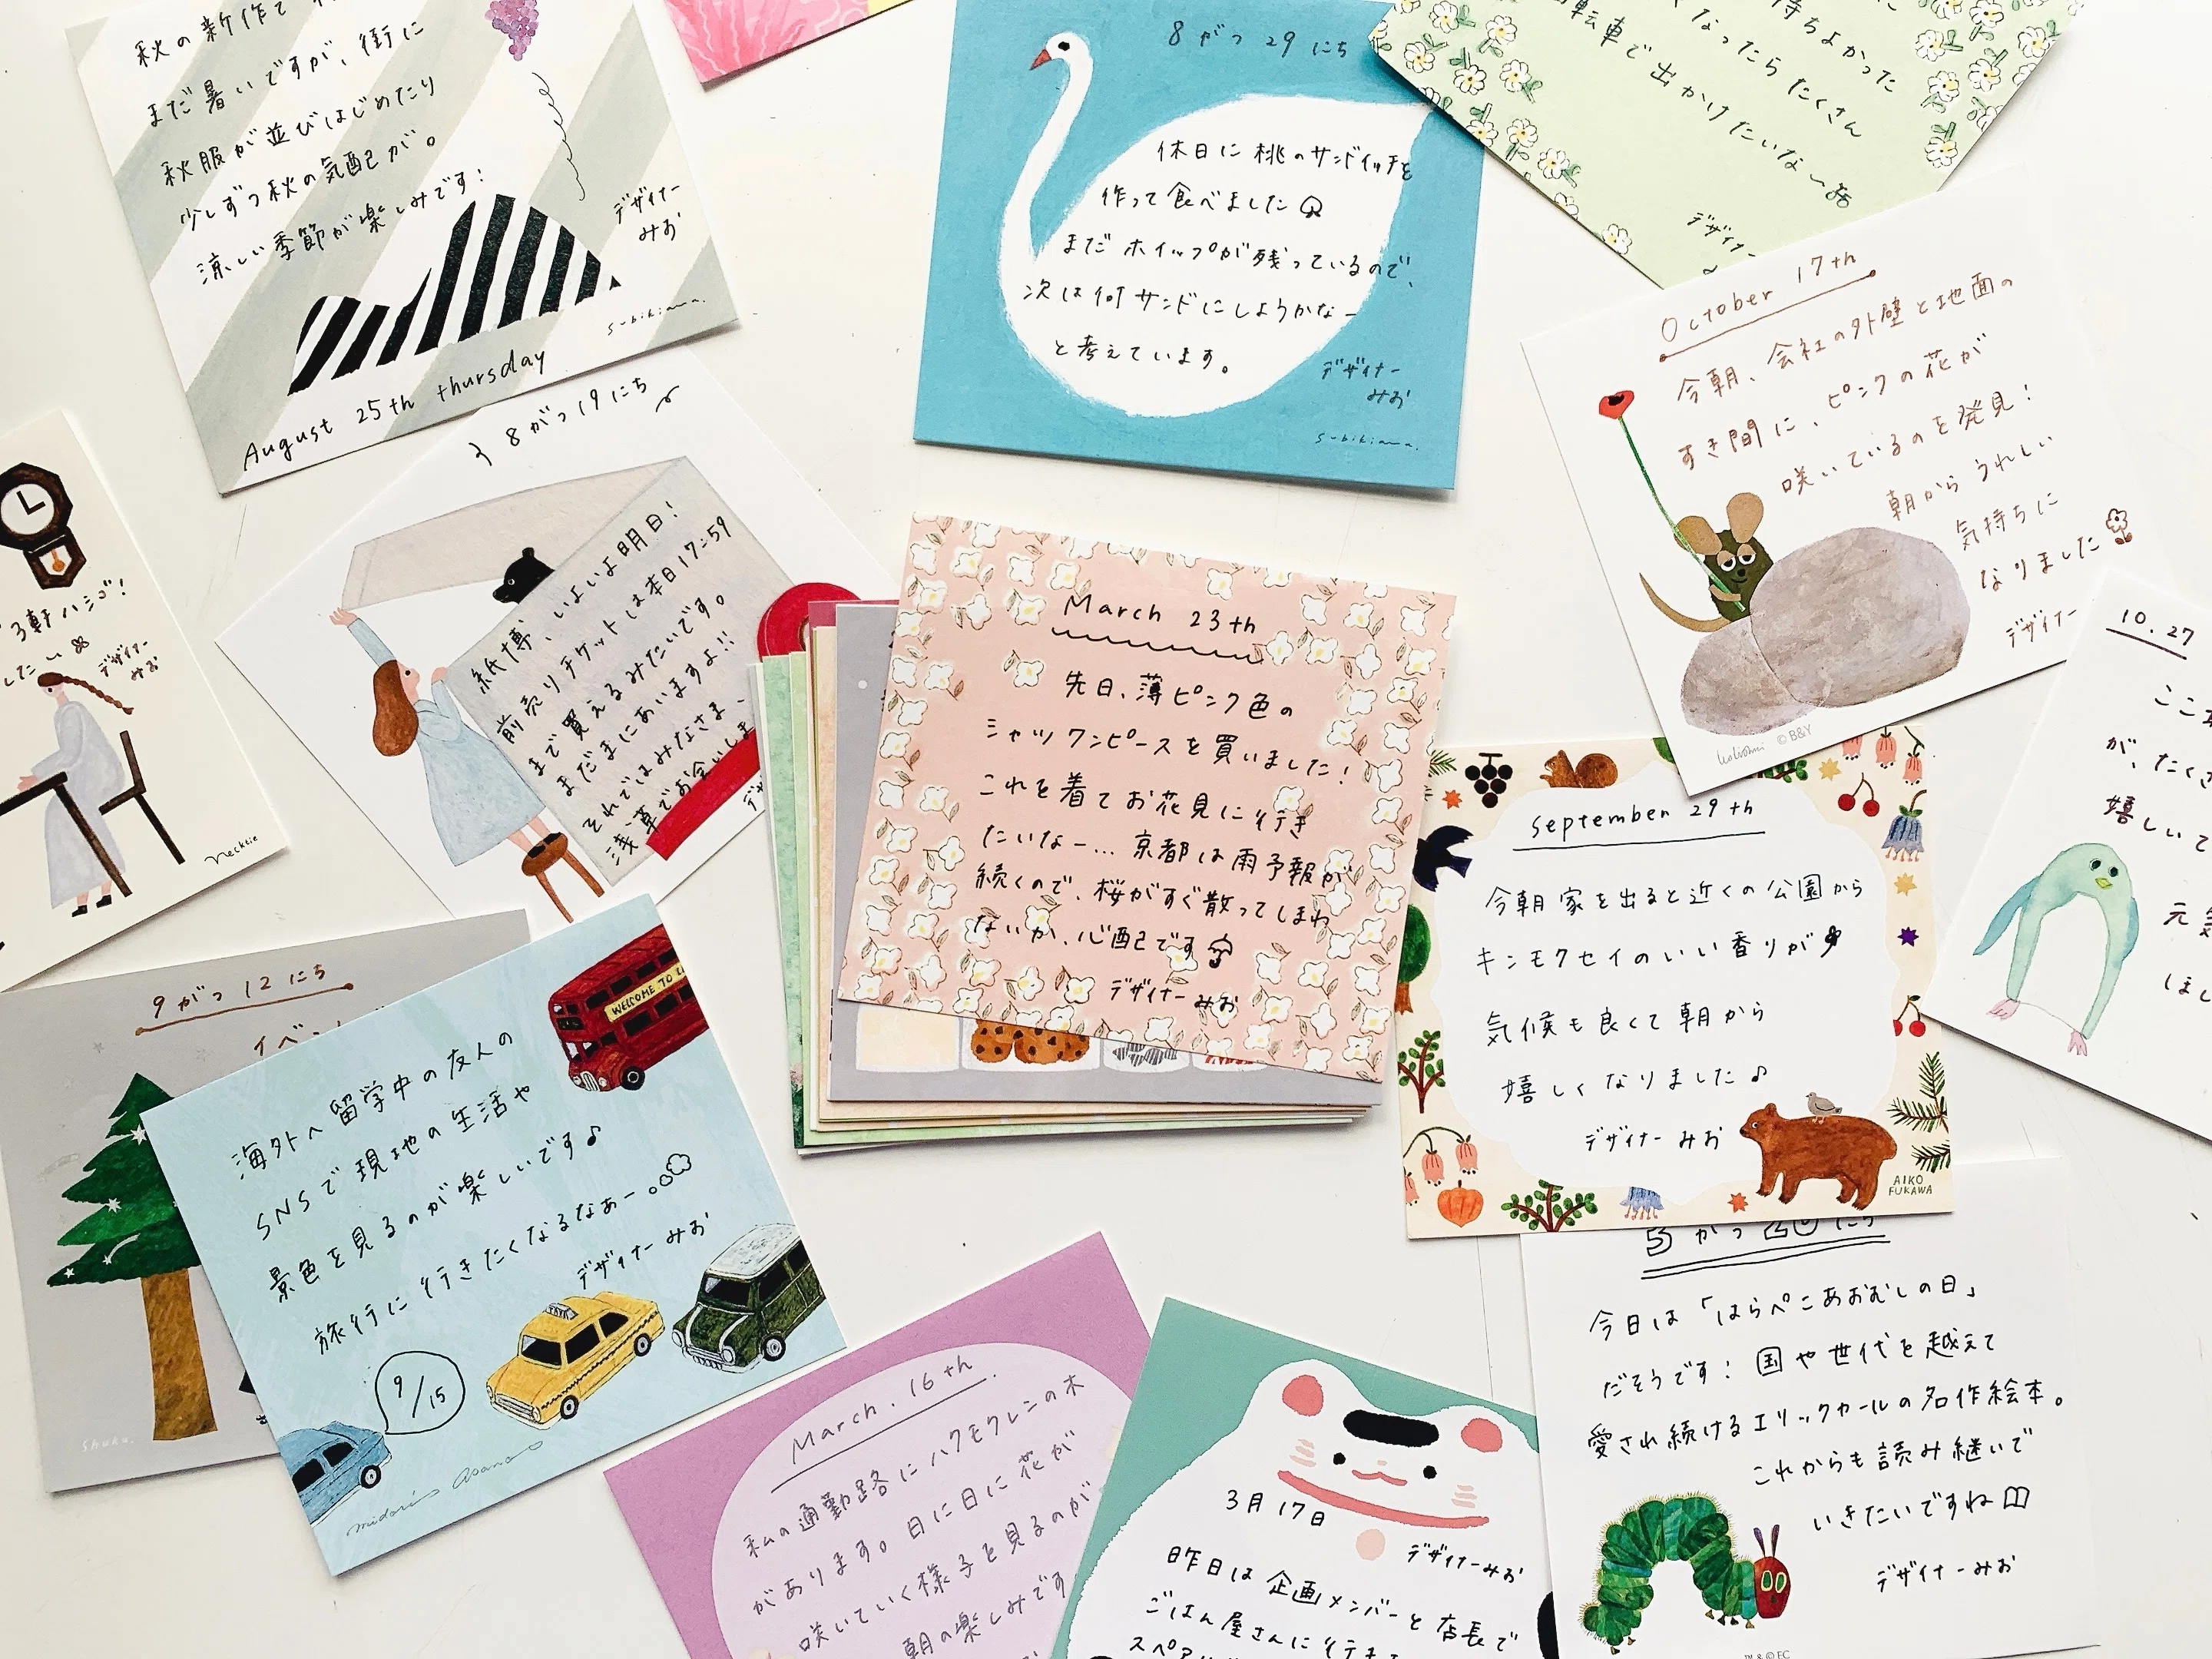 秋の新作で
まだ暑いですが、街に
秋服が並びはじめたり
少しずつ秋の気配が。
涼しい季節が楽しみです!
デザイナー
みお
subikiawa.
August 25th thursday
8がつ29にち
休日に桃のサンドイッチを
作って食べました
まだホイップが残っているので、
次は何サンドにしようかなー
と考えています。
デザイナー
みお
subikiawa.
持ちよかった
くなったらたくさん
転車で出かけたいな〜
デザイナー
October 17th
今朝、会社の外壁と地面の
すき間に、ピンクの花が
咲いているのを発見!
朝から うれしい
気持ちに
なりました
デザイナー
©B&Y
8がつ19にち
紙博、いよいよ明日!
前売りチケットは本日17:59
まで買えるみたいです。
まだまにあいますよ!!
それではみなさま、
浅草でお会いしま
3軒ハシゴ!
した〜
デザイナー
みお
necktie
March 23th
先日、薄ピンク色の
シャツワンピースを買いました!
これを着てお花見に行き
たいなー... 京都は雨予報が
続くので、桜がすぐ散ってしまわ
ないか、心配です
デザイナー みお
10.27
ここ
が、たくさ
嬉しいて
元気
ほし
September 29th
今朝家を出ると近くの公園から
キンモクセイのいい香りが
気候も良くて朝から
嬉しくなりました♪
デザイナー みお
AIKO
FUKAWA
9がつ12にち
イベン
shuka.
WELCOME TO L
海外へ留学中の友人の
SNSで現地の生活や
景色を見るのが楽しいです♪
旅行に行きたくなるなぁー。
デザイナー みお
9/15
midori asano
March. 16th.
私の通勤路にハクモクレンの木
があります。日に日に花が
咲いていく様子を見るのが
朝の楽しみです
3月17日
デザイナーみお
昨日は企画メンバーと店長で
ごはん屋さんに行き
スペア
5がつ20にち
今日は「はらぺこあおむしの日」
だそうです! 国や世代を越えて
愛され続けるエリックカールの名作絵本。
これからも読み継いで
いきたいですね
デザイナーみお
TM & © EC